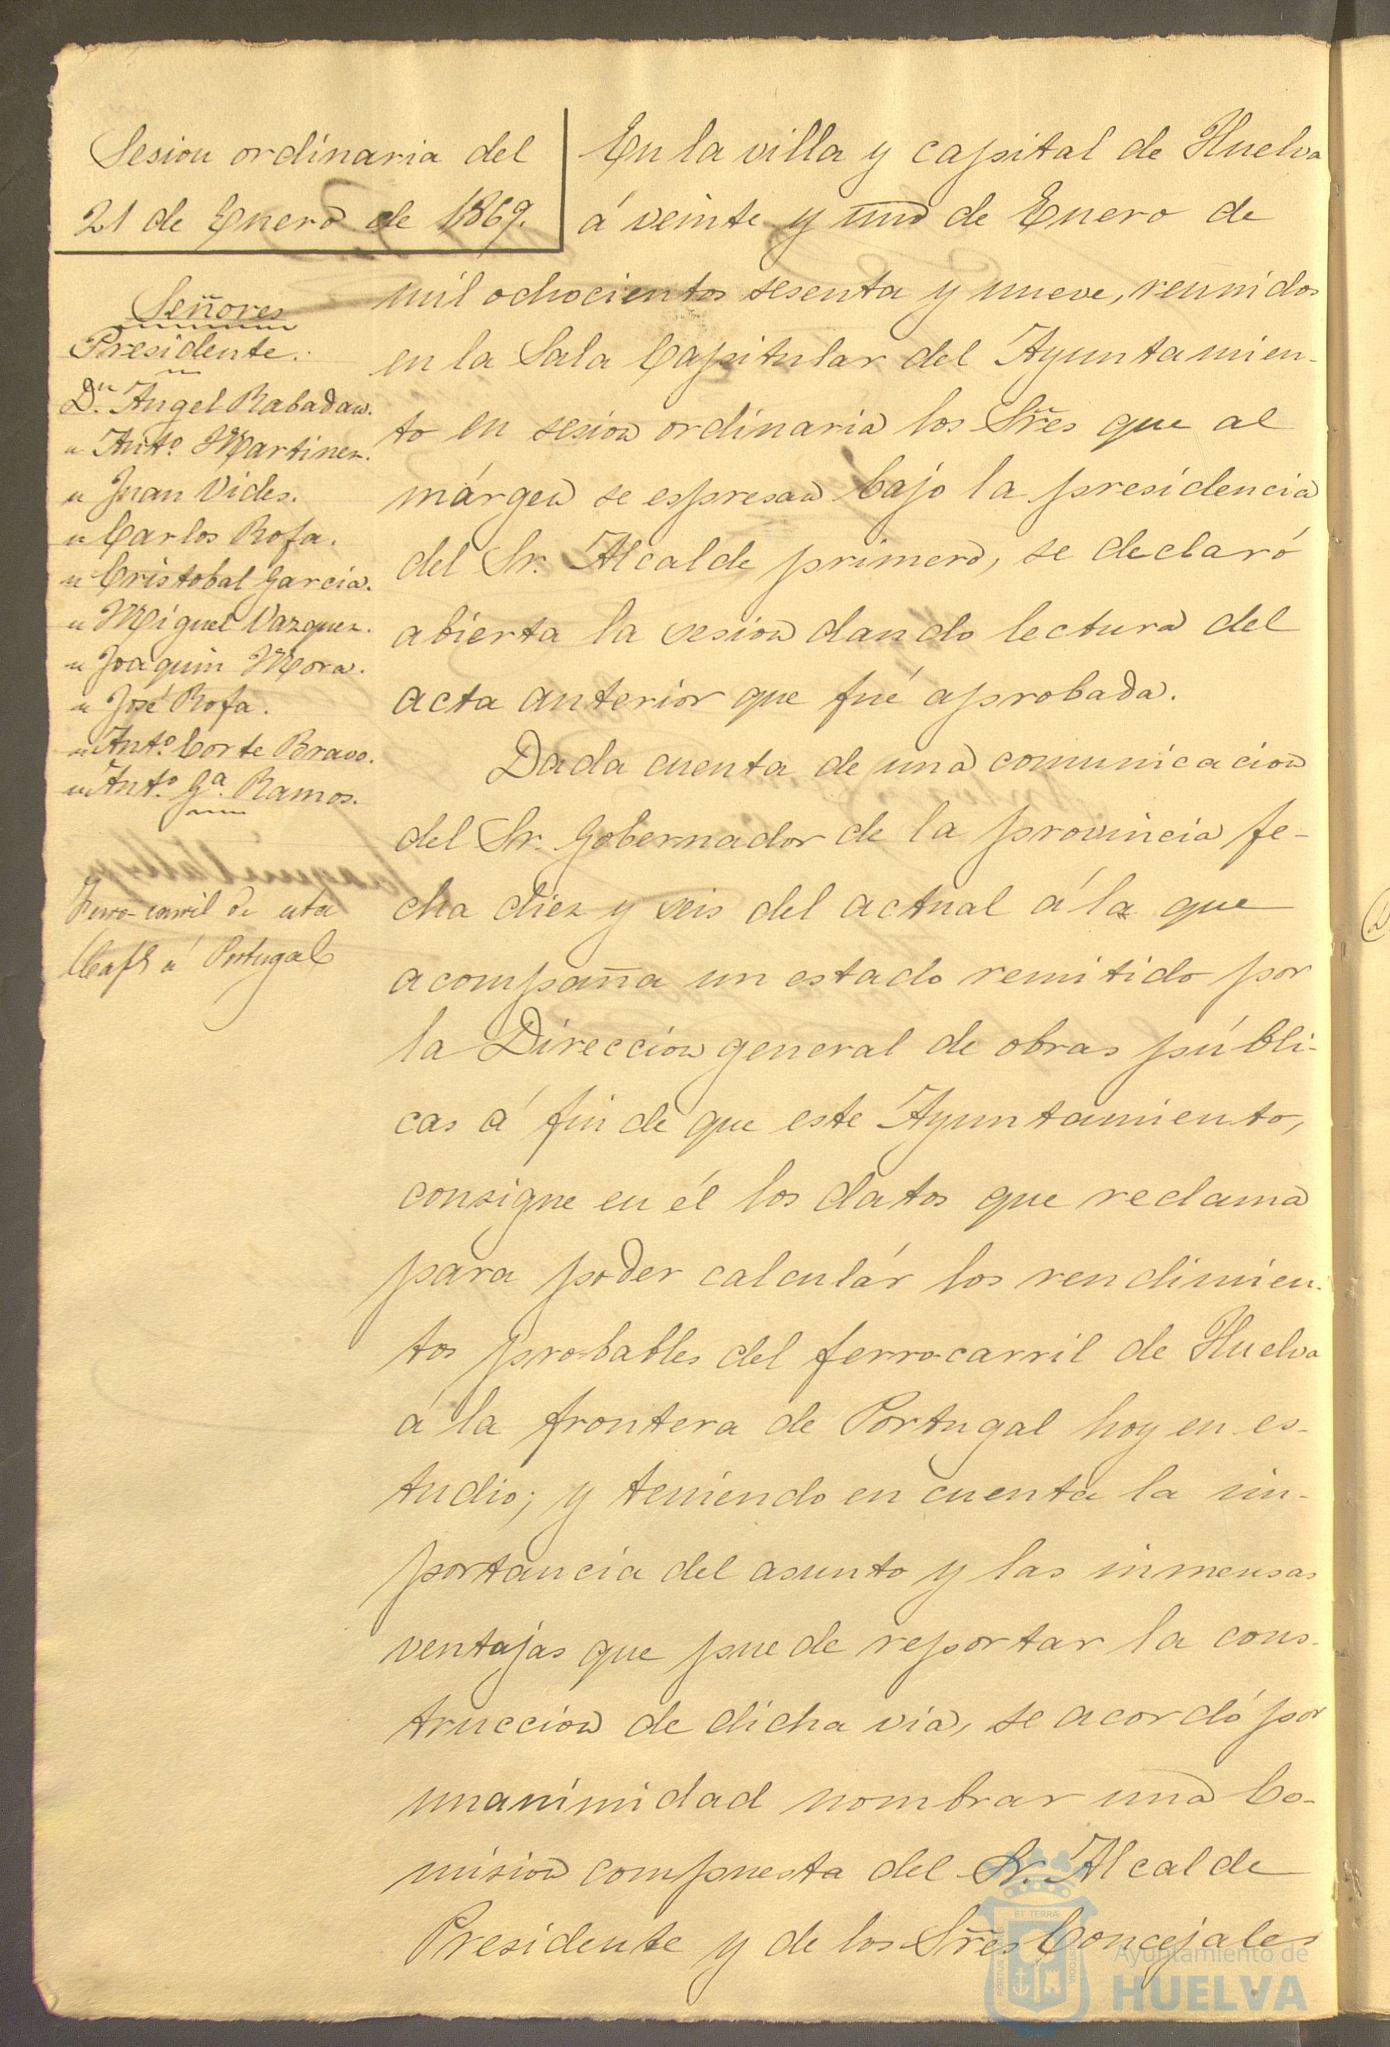 Sesion ordinaria del
21 de Enero de 1869.
Señores
Presidente.
Dn. Angel Rabadan.
" Anto. Martinez.
" Juan Vides.
" Carlos Rofa.
" Cristobal Garcia.
" Miguel Vazquez.
" Joaquin Mora.
" José Rofa.
" Anto. Corte Bravo.
" Anto. Ga. Ramos.
Ferro-carril de esta
Capl á Portugal
En la villa y capital de Huelva
á veinte y uno de Enero de
mil ochocientos sesenta y nueve, reunidos
en la Sala Capitular del Ayuntamien-
to en sesion ordinaria los Sres que al
márgen se espresan bajo la presidencia
del Sr. Alcalde primero, se declaró
abierta la sesion dando lectura del
acta anterior que fué aprobada.
Dada cuenta de una comunicacion
del Sr. Gobernador de la provincia fe-
cha diez y seis del actual á la que
acompaña un estado remitido por
la Direccion general de obras públi-
cas á fin de que este Ayuntamiento,
consigne en él los datos que reclama
para poder calculár los rendimien-
tos probables del ferro-carril de Huelva
á la frontera de Portugal hoy en es-
tudio; y teniendo en cuenta la im-
portancia del asunto y las inmensas
ventajas que puede reportar la cons-
truccion de dicha via, se acordó por
unanimidad nombrar una Co-
mision compuesta del Sr. Alcalde
Presidente y de los Sres Concejales
Ayuntamiento de
HUELVA